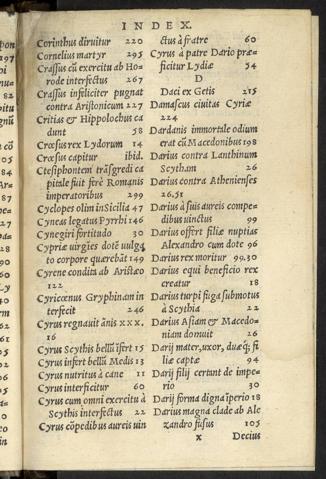 INDEX.
Corinthus diruitur 220
Cornelius martyr 295
Craſſus cū exercitu ab Ho-
rode interfectus 267
Craſſus infeliciter pugnat
contra Ariſtonicum 227
Critias & Hippolochus ca
dunt 58
Crœſus rex Lydorum 14
Crœſus capitur ibid.
Cteſiphontem trāſgredi ca
pitale fuit ferè Romanis
imperatoribus 299
Cyclopes olim in Sicilia 47
Cyneas legatus Pyrrhi 146
Cynegiri fortitudo 30
Cypriæ virgīes dotē vulga
to corpore quærebāt 149
Cyrene condita ab Ariſtæo
122
Cyricœnus Gryphinam in
terfecit 246
Cyrus regnauit ānis xxx.
16
Cyrus Scythis bellū īfert 15
Cyrus infert bellū Medis 13
Cyrus nutritus à cane 11
Cyrus interficitur 60
Cyrus cum omni exercitu à
Scythis interfectus 22
Cyrus cōpedibus aureis uin
ctus à fratre 60
Cyrus à patre Dario præ-
ficitur Lydiæ 54
D
Daci ex Getis 215
Damaſcus ciuitas Cyriæ
224
Dardanis immortale odium
erat cū Macedonibus 198
Darius contra Lanthinum
Scytham 26
Darius contra Athenienſes
26.51
Darius à ſuis aureis compe-
dibus uinctus 99
Darius offert filiæ nuptias
Alexandro cum dote 96
Darius rex moritur 99.30
Darius equi beneficio rex
creatur 18
Darius turpi fuga ſubmotus
à Scythia 22
Darius Aſiam & Macedo-
niam domuit 26
Darij mater, uxor, duæq; fi
liæ captæ 94
Darij filij certant de impe-
rio 30
Darij forma digna īperio 18
Darius magna clade ab Ale
xandro fuſus 105
x Decius